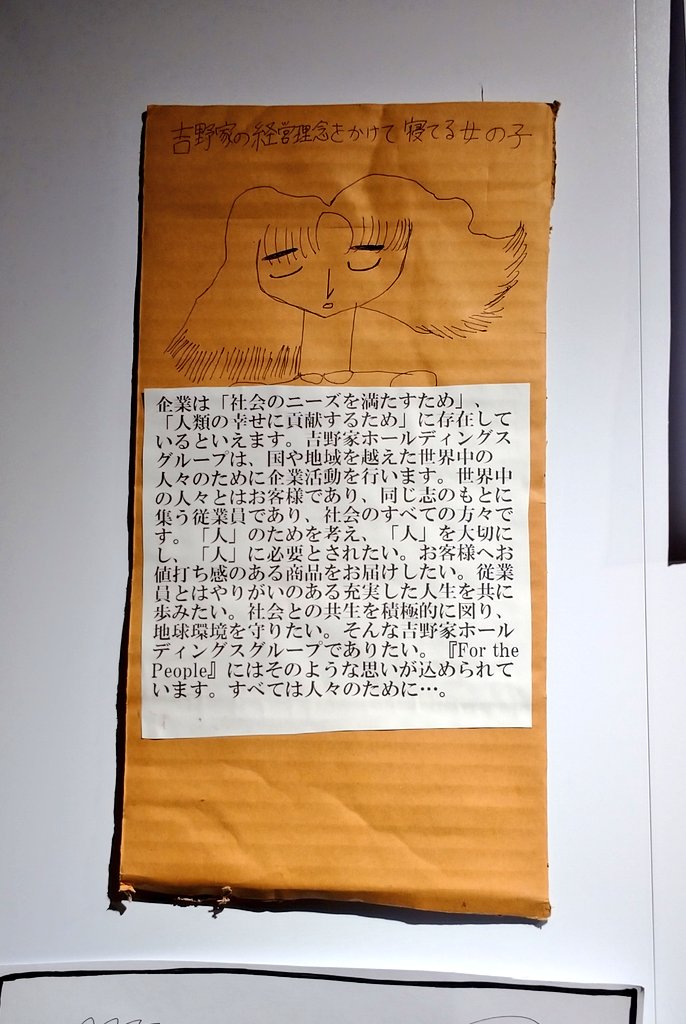 吉野家の経営理念をかけて寝てる女の子
企業は「社会のニーズを満たすため」、
「人類の幸せに貢献するため」に存在して
いるといえます。吉野家ホールディングス
グループは、国や地域を越えた世界中の
人々のために企業活動を行います。世界中
の人々とはお客様であり、同じ志のもとに
集う従業員であり、社会のすべての方々で
す。「人」のためを考え、「人」を大切に
し、「人」に必要とされたい。お客様へお
値打ち感のある商品をお届けしたい。従業
員とはやりがいのある充実した人生を共に
歩みたい。社会との共生を積極的に図り、
地球環境を守りたい。そんな吉野家ホール
ディングスグループでありたい。『For the
People』にはそのような思いが込められて
います。すべては人々のために…。